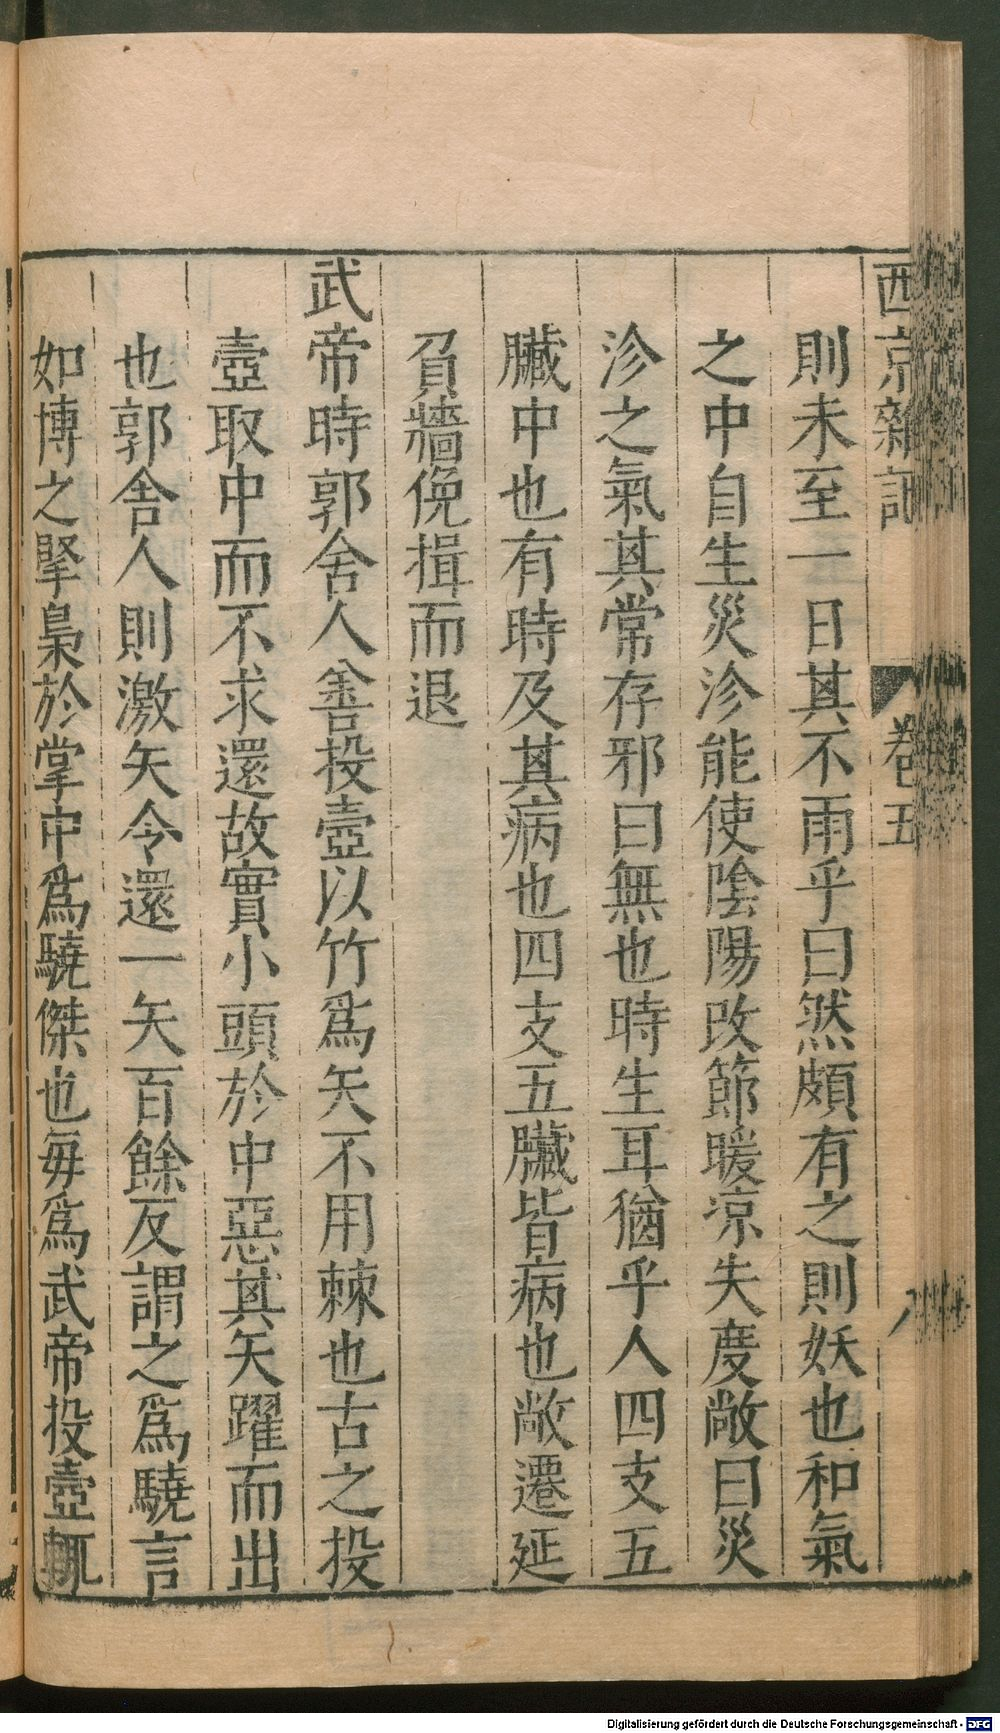 西京雜記 卷五 八
則未至一日其不雨乎曰然頗有之則妖也和氣
之中自生災沴能使陰陽改節暖凉失度敞曰災
沴之氣其常存邪曰無也時生耳猶乎人四支五
臟中也有時及其病也四支五臟皆病也敞遷延
負牆俛揖而退
武帝時郭舍人善投壺以竹爲矢不用棘也古之投
壺取中而不求還故實小頭於中惡其矢躍而出
也郭舍人則激矢令還一矢百餘反謂之爲驍言
如博之掔梟於掌中爲驍傑也每爲武帝投壺輒
Digitalisierung gefördert durch die Deutsche Forschungsgemeinschaft - DFG